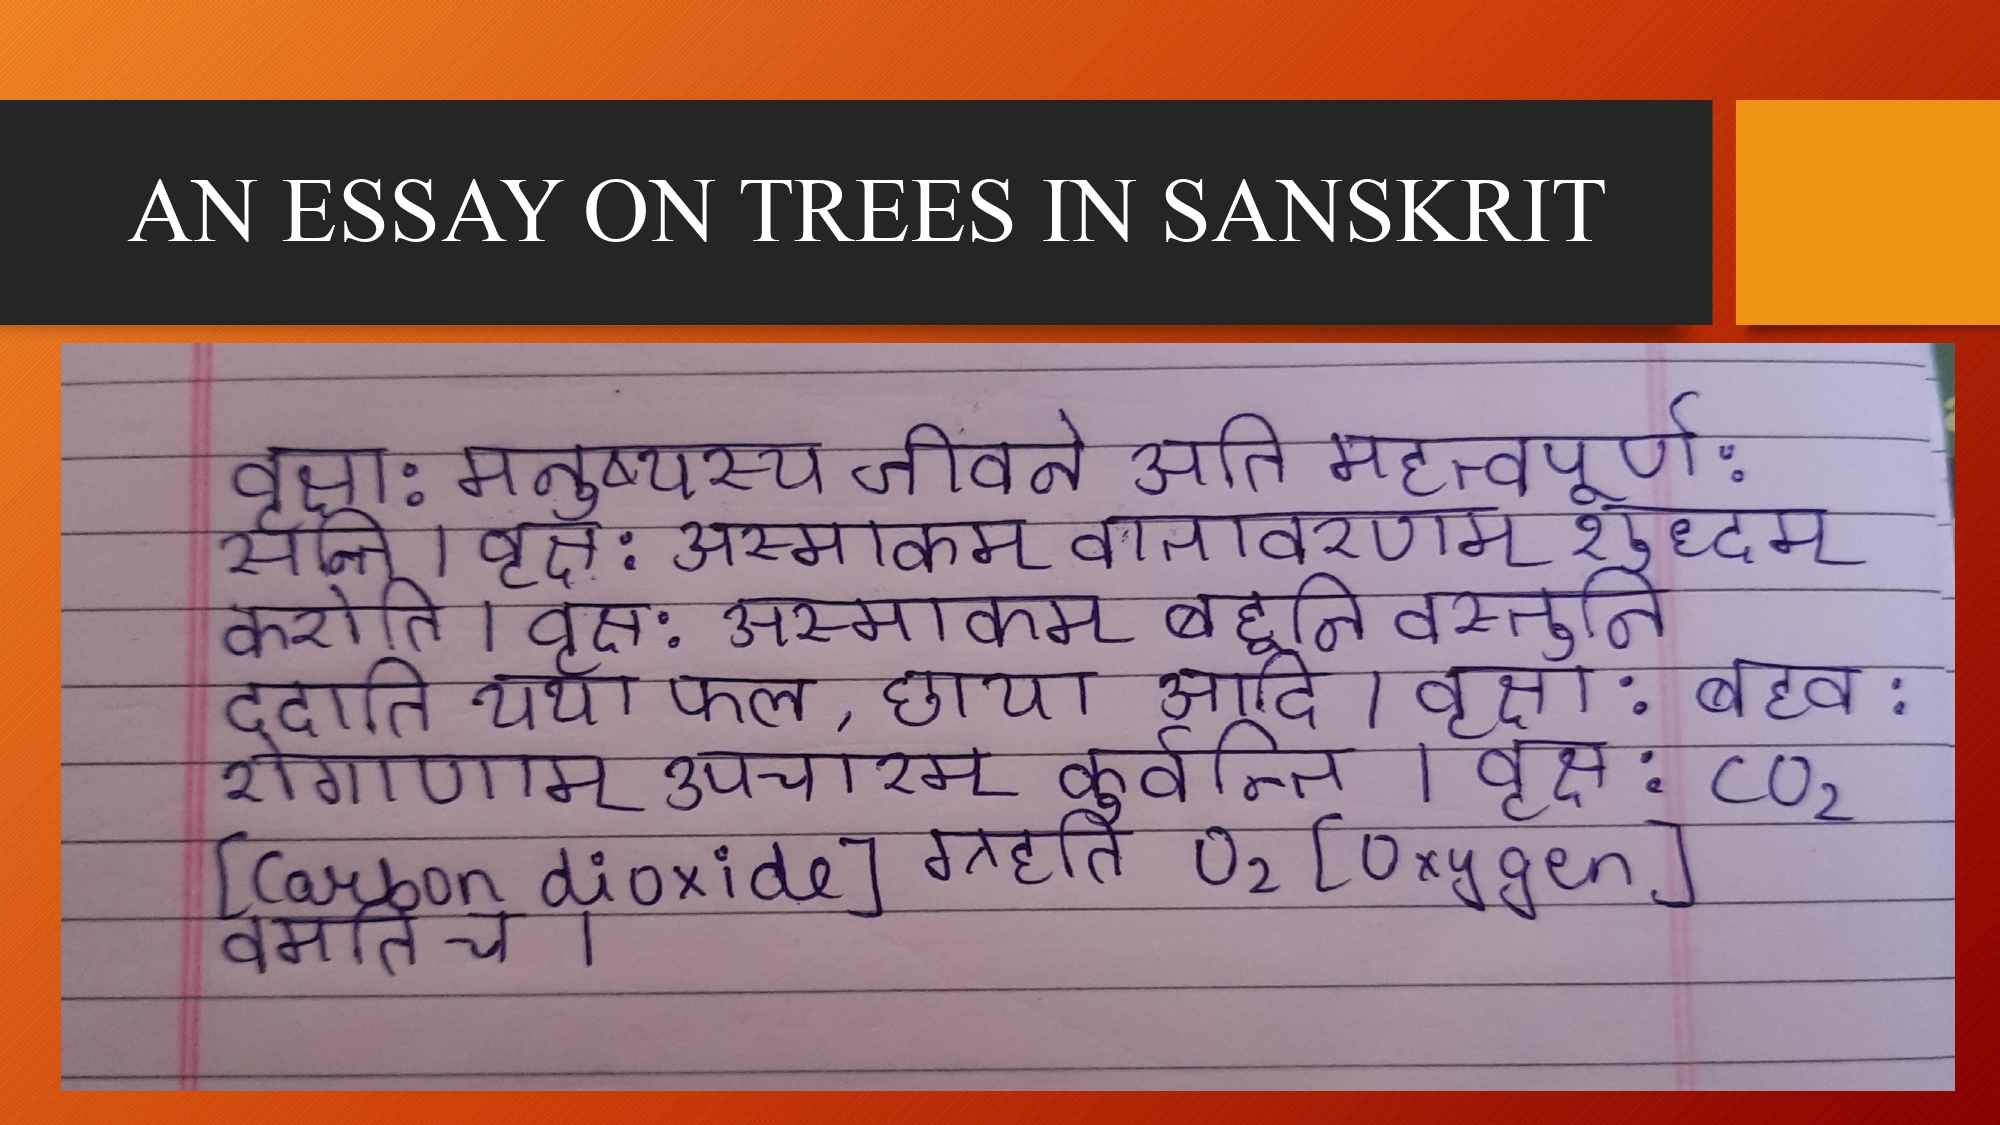 AN ESSAY ON TREES IN SANSKRIT
वृक्षाः मनुष्यस्य जीवने अति महत्त्वपूर्णः
सन्ति । वृक्षः अस्माकम् वातावरणम् शुध्दम्
करोति । वृक्षः अस्माकम् बहूनि वस्तुनि
ददाति यथा फल, छाया आदि । वृक्षाः बहवः
रोगाणाम् उपचारम् कुर्वन्ति । वृक्षः CO₂
[Carbon dioxide] ग्रहति O₂ [Oxygen]
वमति च ।